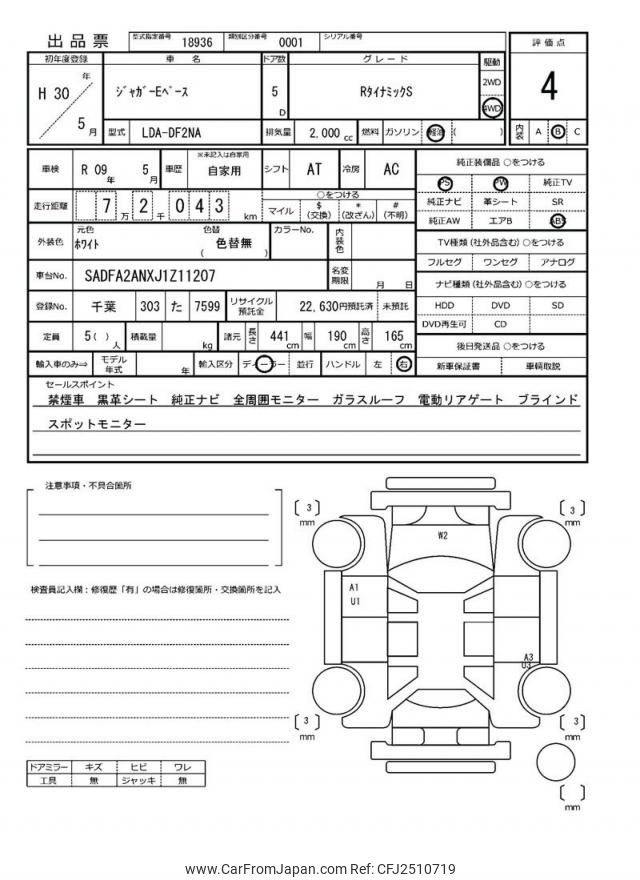 出品票 型式指定番号 18936 類別区分番号 0001 シリアル番号
初年度登録 車 名 ドア数 グレード 駆動 評価点
H 30 年 5 月 ジャガーEペース 5 D RダイナミックS 2WD 4WD 4
型式 LDA-DF2NA 排気量 2,000 cc 燃料 ガソリン 軽油 ( ) 内装 A B C
車検 R 09 年 5 月 車歴 ※未記入は自家用 自家用 シフト AT 冷房 AC 純正装備品 ○をつける
PS PW 純正TV
走行距離 7 万 2 千 0 4 3 km ○をつける マイル $ (交換) * (改ざん) # (不明) 純正ナビ 革シート SR
純正AW エアB ABS
外装色 元色 ホワイト 色替 ( 色替無 ) カラーNo. 内装色 TV種類 (社外品含む) ○をつける
フルセグ ワンセグ アナログ
車台No. SADFA2ANXJ1Z11207 名変期限 月 日 ナビ種類 (社外品含む) ○をつける
登録No. 千葉 303 た 7599 リサイクル預託金 22,630円預託済 未預託 HDD DVD SD
DVD再生可 CD
定員 5 ( ) 人 積載量 kg 諸元 長さ 441 cm 幅 190 cm 高さ 165 cm 後日発送品 ○をつける
輸入車のみ⇒ モデル年式 年 輸入区分 ディーラー 並行 ハンドル 左 右 新車保証書 車輌取説
セールスポイント
禁煙車 黒革シート 純正ナビ 全周囲モニター ガラスルーフ 電動リアゲート ブラインド
スポットモニター
注意事項・不具合箇所
検査員記入欄：修復歴「有」の場合は修復箇所・交換箇所を記入
ドアミラー キズ ヒビ ワレ
工具 無 ジャッキ 無
[ 3 ] mm
[ 3 ] mm
W2
A1
U1
A3
U3
[ 3 ] mm
[ 3 ] mm
[ ] mm
www.CarFromJapan.com Ref: CFJ2510719